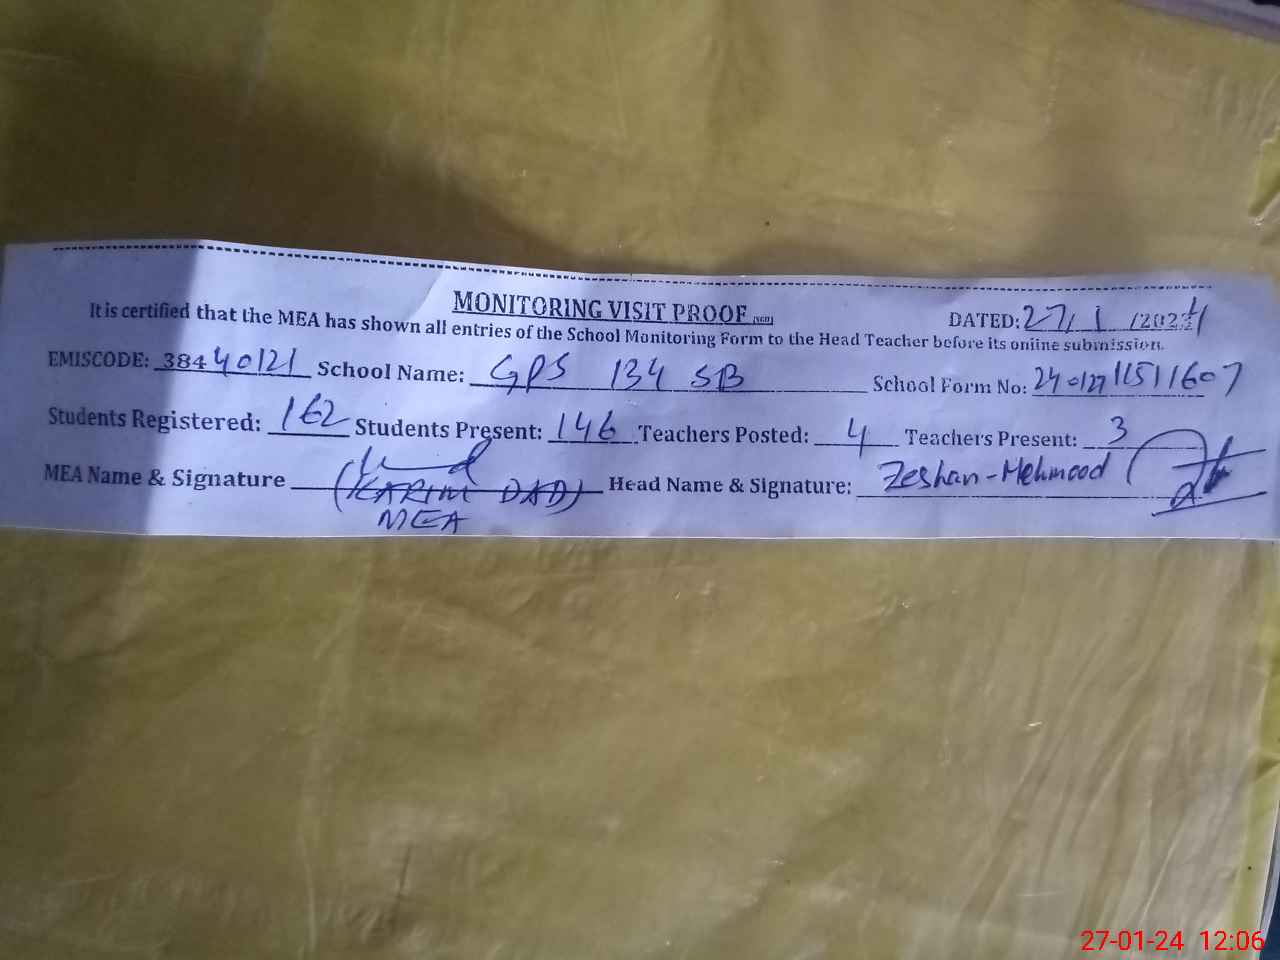 MONITORING VISIT PROOF (SGD)
DATED: 27/1/2024
It is certified that the MEA has shown all entries of the School Monitoring Form to the Head Teacher before its online submission.
EMISCODE: 38440121 School Name: GPS 134 SB School Form No: 24012711511607
Students Registered: 162 Students Present: 146 Teachers Posted: 4 Teachers Present: 3
MEA Name & Signature (KARIM DAD) Head Name & Signature: Zeshan-Mehmood
MEA
27-01-24 12:06